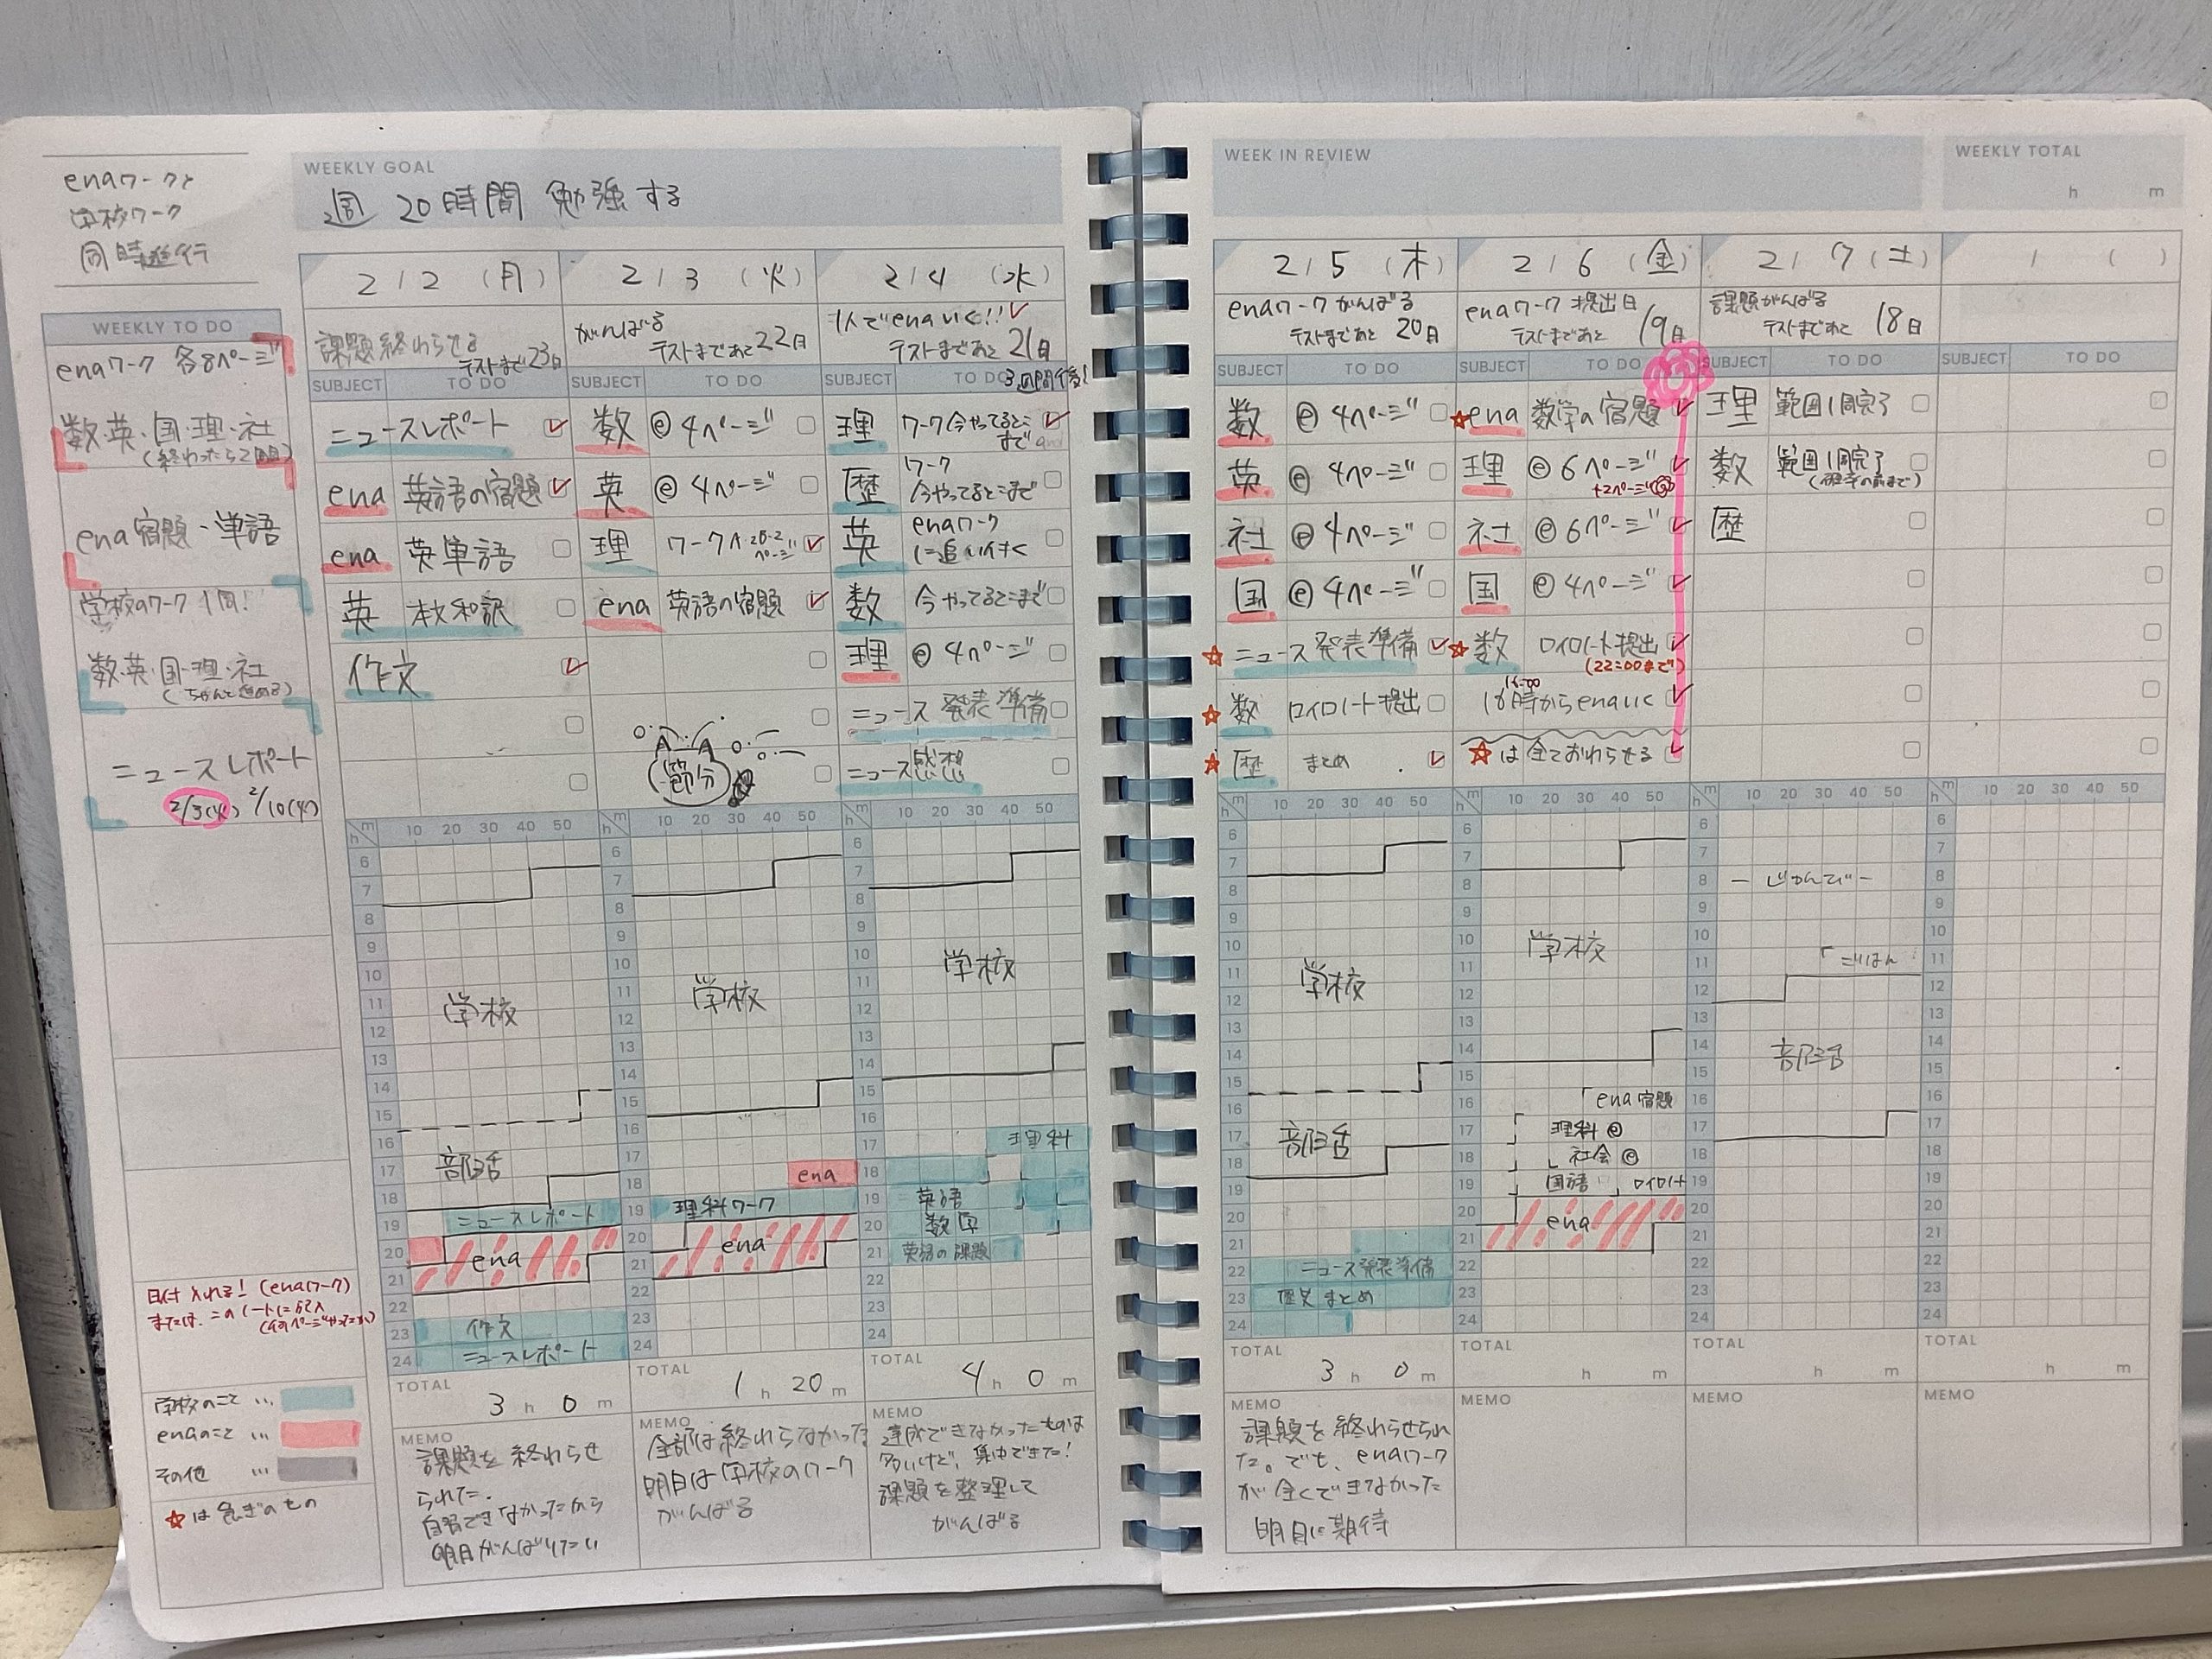 enaワークと
学校ワーク
同時進行
WEEKLY GOAL
週 20時間 勉強する
WEEKLY TO DO
enaワーク 各8ページ
数・英・国・理・社
(終わったら2周目)
ena宿題・単語
学校のワーク1周!
数・英・国・理・社
(ちゃんと進める)
ニュースレポート
2/3(火) 2/10(火)
日付入れる! (enaワーク)
または、このノートに記入
学校のこと …
enaのこと …
その他 …
☆は急ぎのもの
2/2 (月)
課題終わらせる
テストまで23日
SUBJECT TO DO
ニュースレポート
ena 英語の宿題
ena 英単語
英 本文和訳
作文
h m 10 20 30 40 50
6
7
8
9
10
11
12
13
14
15
16
17
18
19
20
21
22
23
24
学校
部活
ニュースレポート
ena
作文
ニュースレポート
TOTAL
3 h 0 m
MEMO
課題を終わらせ
られた.
自習できなかったから
明日がんばりたい
2/3 (火)
がんばる
テストまであと22日
SUBJECT TO DO
数 @ 4ページ
英 @ 4ページ
理 ワーク
ページ
ena 英語の宿題
節分
h m 10 20 30 40 50
6
7
8
9
10
11
12
13
14
15
16
17
18
19
20
21
22
23
24
学校
ena
理科ワーク
ena
TOTAL
1 h 20 m
MEMO
全部は終わらなかった
明日は学校のワーク
がんばる
2/4 (水)
1人でenaいく!!
テストまであと21日
SUBJECT TO DO
理 ワーク今やってるとこ
まで
歴 ワーク
今やってるとこまで
英 enaワーク
に追いつく
数 今やってるとこまで
理 @ 4ページ
ニュース 発表準備
ニュース感想
h m 10 20 30 40 50
6
7
8
9
10
11
12
13
14
15
16
17
18
19
20
21
22
23
24
学校
理科
英語
数学
英語の課題
TOTAL
4 h 0 m
MEMO
達成できなかったものは
多いけど、集中できた!
課題を整理して
がんばる
WEEK IN REVIEW
WEEKLY TOTAL
h m
2/5 (木)
enaワークがんばる
テストまであと20日
SUBJECT TO DO
数 @ 4ページ
英 @ 4ページ
社 @ 4ページ
国 @ 4ページ
☆ニュース発表準備
☆数 ロイロノート提出
☆歴 まとめ
h m 10 20 30 40 50
6
7
8
9
10
11
12
13
14
15
16
17
18
19
20
21
22
23
24
学校
部活
ニュース発表準備
歴史まとめ
TOTAL
3 h 0 m
MEMO
課題を終わらせられ
た。でも、enaワーク
が全くできなかった
明日に期待
2/6 (金)
enaワーク提出日
テストまであと19日
SUBJECT TO DO
☆ena 数学の宿題
理 @ 6ページ
+2ページ
社 @ 6ページ
国 @ 4ページ
☆数 ロイロノート提出
(22:00まで)
16:00
16時からenaいく
☆は全ておわらせる
h m 10 20 30 40 50
6
7
8
9
10
11
12
13
14
15
16
17
18
19
20
21
22
23
24
学校
ena宿題
理科@
社会@
国語 ロイロノート
ena
TOTAL
h m
MEMO
2/7 (土)
課題がんばる
テストまであと18日
SUBJECT TO DO
理 範囲1周完了
数 範囲1周完了
歴
h m 10 20 30 40 50
6
7
8
9
10
11
12
13
14
15
16
17
18
19
20
21
22
23
24
じゅんび
ごはん
部活
TOTAL
h m
MEMO
/ ( )
SUBJECT TO DO
h m 10 20 30 40 50
6
7
8
9
10
11
12
13
14
15
16
17
18
19
20
21
22
23
24
TOTAL
h m
MEMO